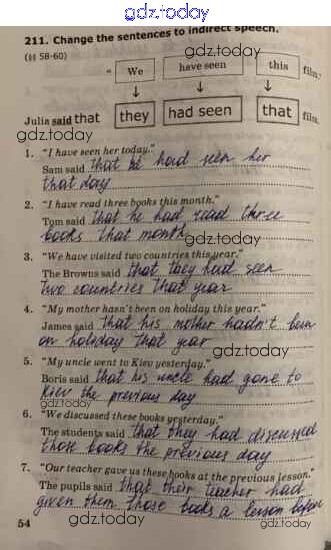 gdz.today
211. Change the sentences to indirect speech.
(§§ 58-60)
gdz.today
" We have seen this film."
Julia said that they had seen that film.
gdz.today
1. "I have seen her today."
Sam said that he had seen her
that day
2. "I have read three books this month."
Tom said that he had read three
books that month
gdz.today
3. "We have visited two countries this year."
The Browns said that they had seen
two countries that year
4. "My mother hasn't been on holiday this year."
James said that his mother hadn't been
on holiday that year
gdz.today
5. "My uncle went to Kiev yesterday."
Boris said that his uncle had gone to
Kiev the previous day
gdz.today
6. "We discussed these books yesterday."
The students said that they had discussed
those books the previous day
7. "Our teacher gave us these books at the previous lesson."
The pupils said that their teacher had
given them those books a lesson before
54
gdz.today
gdz.today